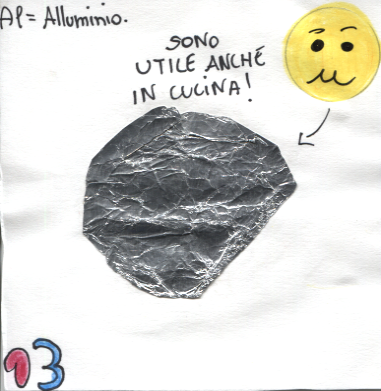 Al = Alluminio.
SONO
UTILE ANCHÉ
IN CUCINA!
13